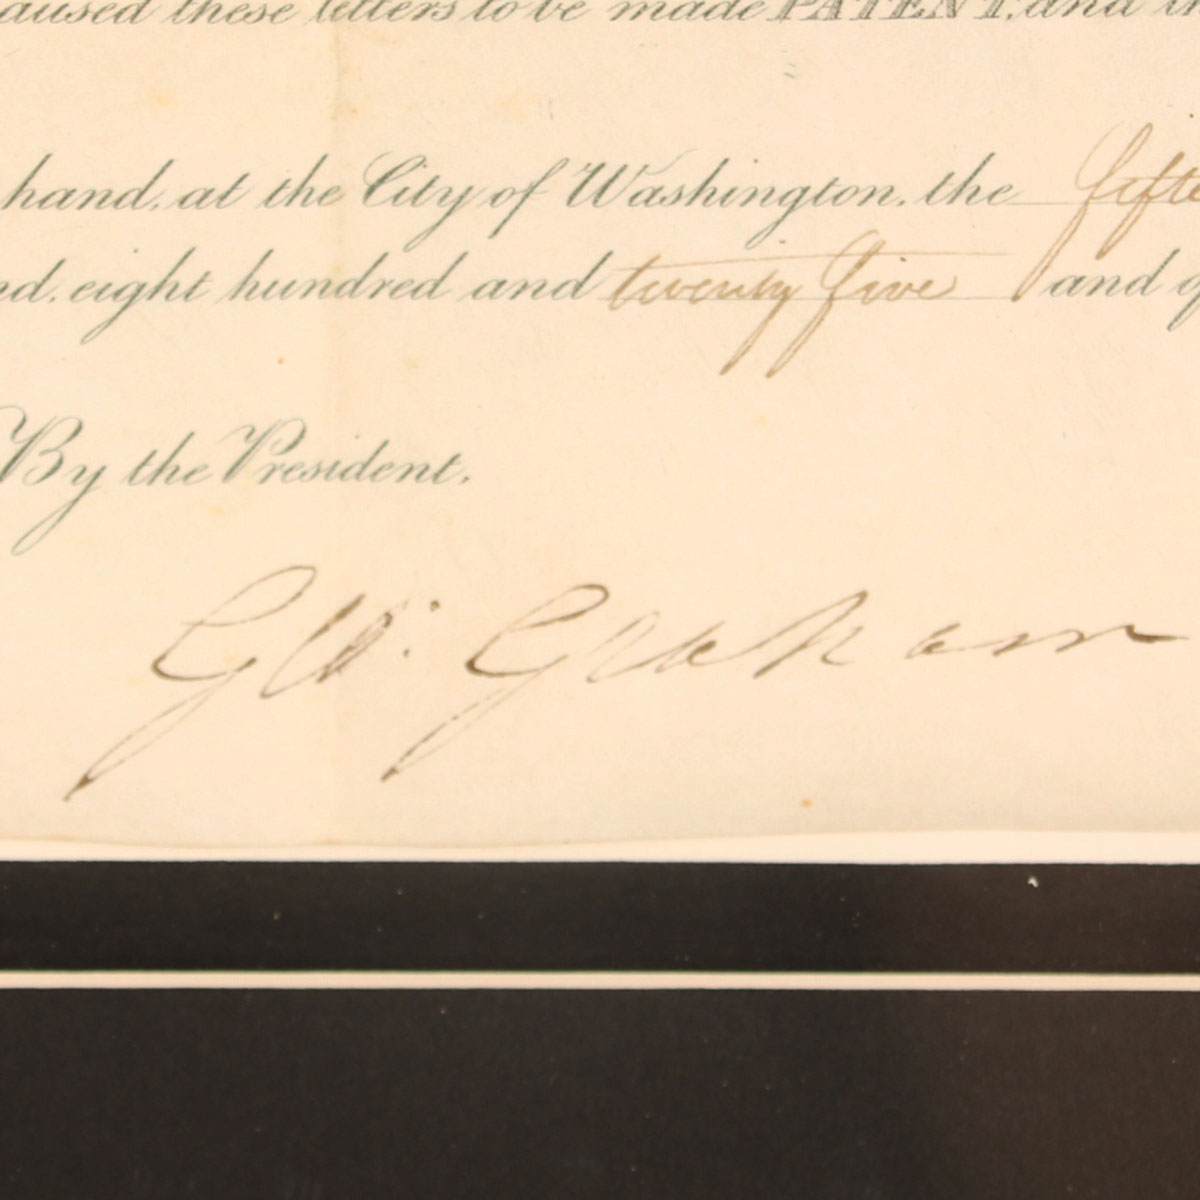 these letters to be made PATENT, and
hand, at the City of Washington, the
eight hundred and twenty five and
By the President.
Gw. Graham